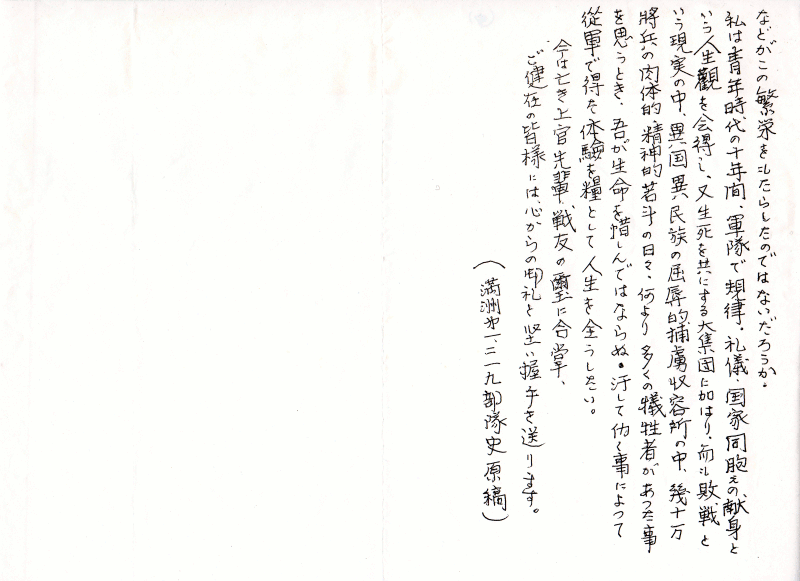 などがこの繁栄をもたらしたのではないだろうか。
私は青年時代の十年間、軍隊で規律・礼儀・国家同胞えの献身と
いう人生觀を会得し、又生死を共にする大集団に加はり、而も敗戦と
いう現実の中、異国異民族の屈辱的捕虜収容所の中、幾十万
將兵の肉体的、精神的苦斗の日々、何より多くの犠牲者があった事
を思うとき、吾が生命を惜しんではならぬ。汗して仂く事によって
従軍で得た体験を糧として人生を全うしたい。
今は亡き上官先輩、戦友の霊に合掌、
ご健在の皆様には、心からの御礼と堅い握手を送ります。
（満洲第一、三一九部隊史原稿）